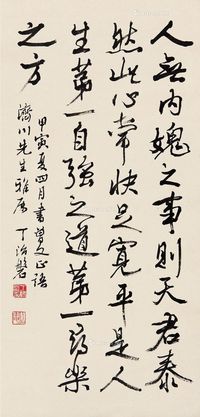 人無內媿之事則天君泰
然此心常快足寬平是人
生第一自強之道第一尋樂
之方
甲寅夏四月書曾文正語
濟川先生雅屬 丁治磐